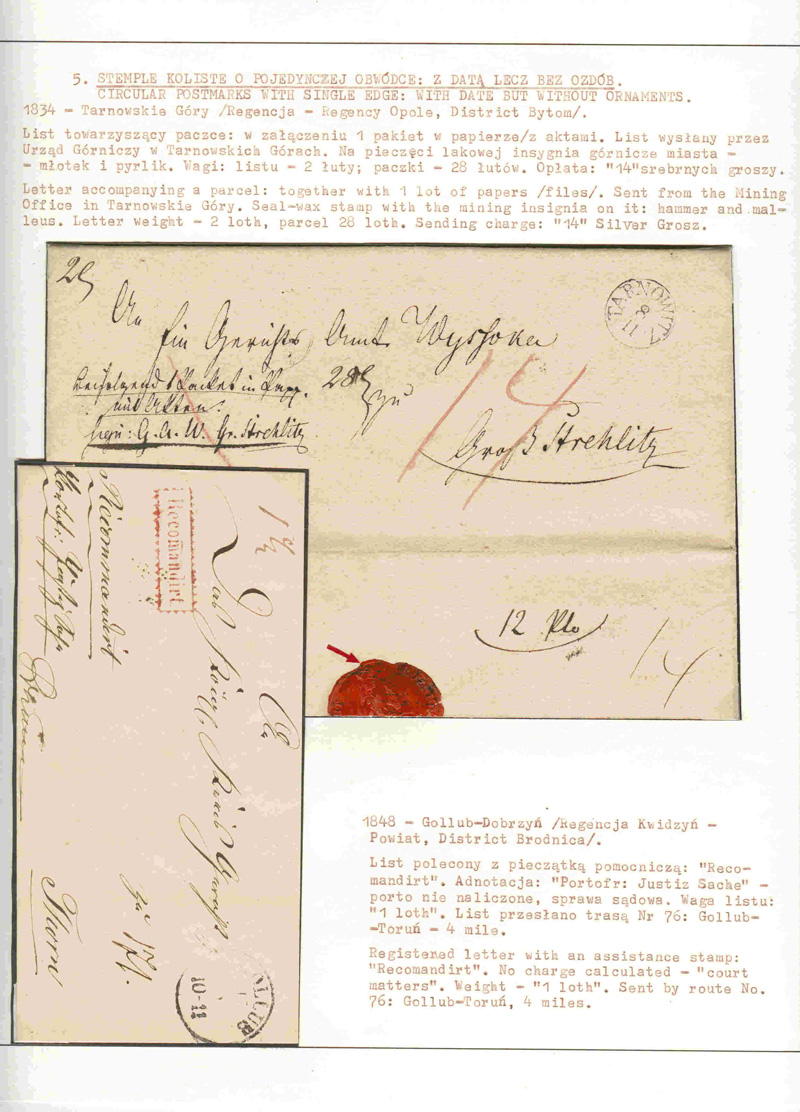 5. STEMPLE KOLISTE O POJEDYNCZEJ OBWÓDCE: Z DATĄ LECZ BEZ OZDÓB.
CIRCULAR POSTMARKS WITH SINGLE EDGE: WITH DATE BUT WITHOUT ORNAMENTS.
1834 - Tarnowskie Góry /Regencja - Regency Opole, District Bytom/.
List towarzyszący paczce: w załączeniu 1 pakiet w papierze/z aktami. List wysłany przez
Urząd Górniczy w Tarnowskich Górach. Na pieczęci lakowej insygnia górnicze miasta -
- młotek i pyrlik. Wagi: listu - 2 łuty; paczki - 28 lutów. Opłata: "14"srebrnych groszy.
Letter accompanying a parcel: together with 1 lot of papers /files/. Sent from the Mining
Office in Tarnowskie Góry. Seal-wax stamp with the mining insignia on it: hammer and mal-
leus. Letter weight - 2 loth, parcel 28 loth. Sending charge: "14" Silver Grosz.
TARNOWITZ
8
11
An
Ein Gerichts Amt Wyssoka
28
zu
beifolgend 1 Packet in Papp.
mit Akten.
G. A. W. Gr. Strehlitz
14
Groß Strehlitz
12 Pto
14
Recommandirt
Recomandirt
An
Das
Thorn
GOLLUB
10-11
1848 - Gollub-Dobrzyń /Regencja Kwidzyń -
Powiat, District Brodnica/.
List polecony z pieczątką pomocniczą: "Reco-
mandirt". Adnotacja: "Portofr: Justiz Sache" -
porto nie naliczone, sprawa sądowa. Waga listu:
"1 loth". List przesłano trasą Nr 76: Gollub-
-Toruń - 4 mile.
Registered letter with an assistance stamp:
"Recomandirt". No charge calculated - "court
matters". Weight - "1 loth". Sent by route No.
76: Gollub-Toruń, 4 miles.